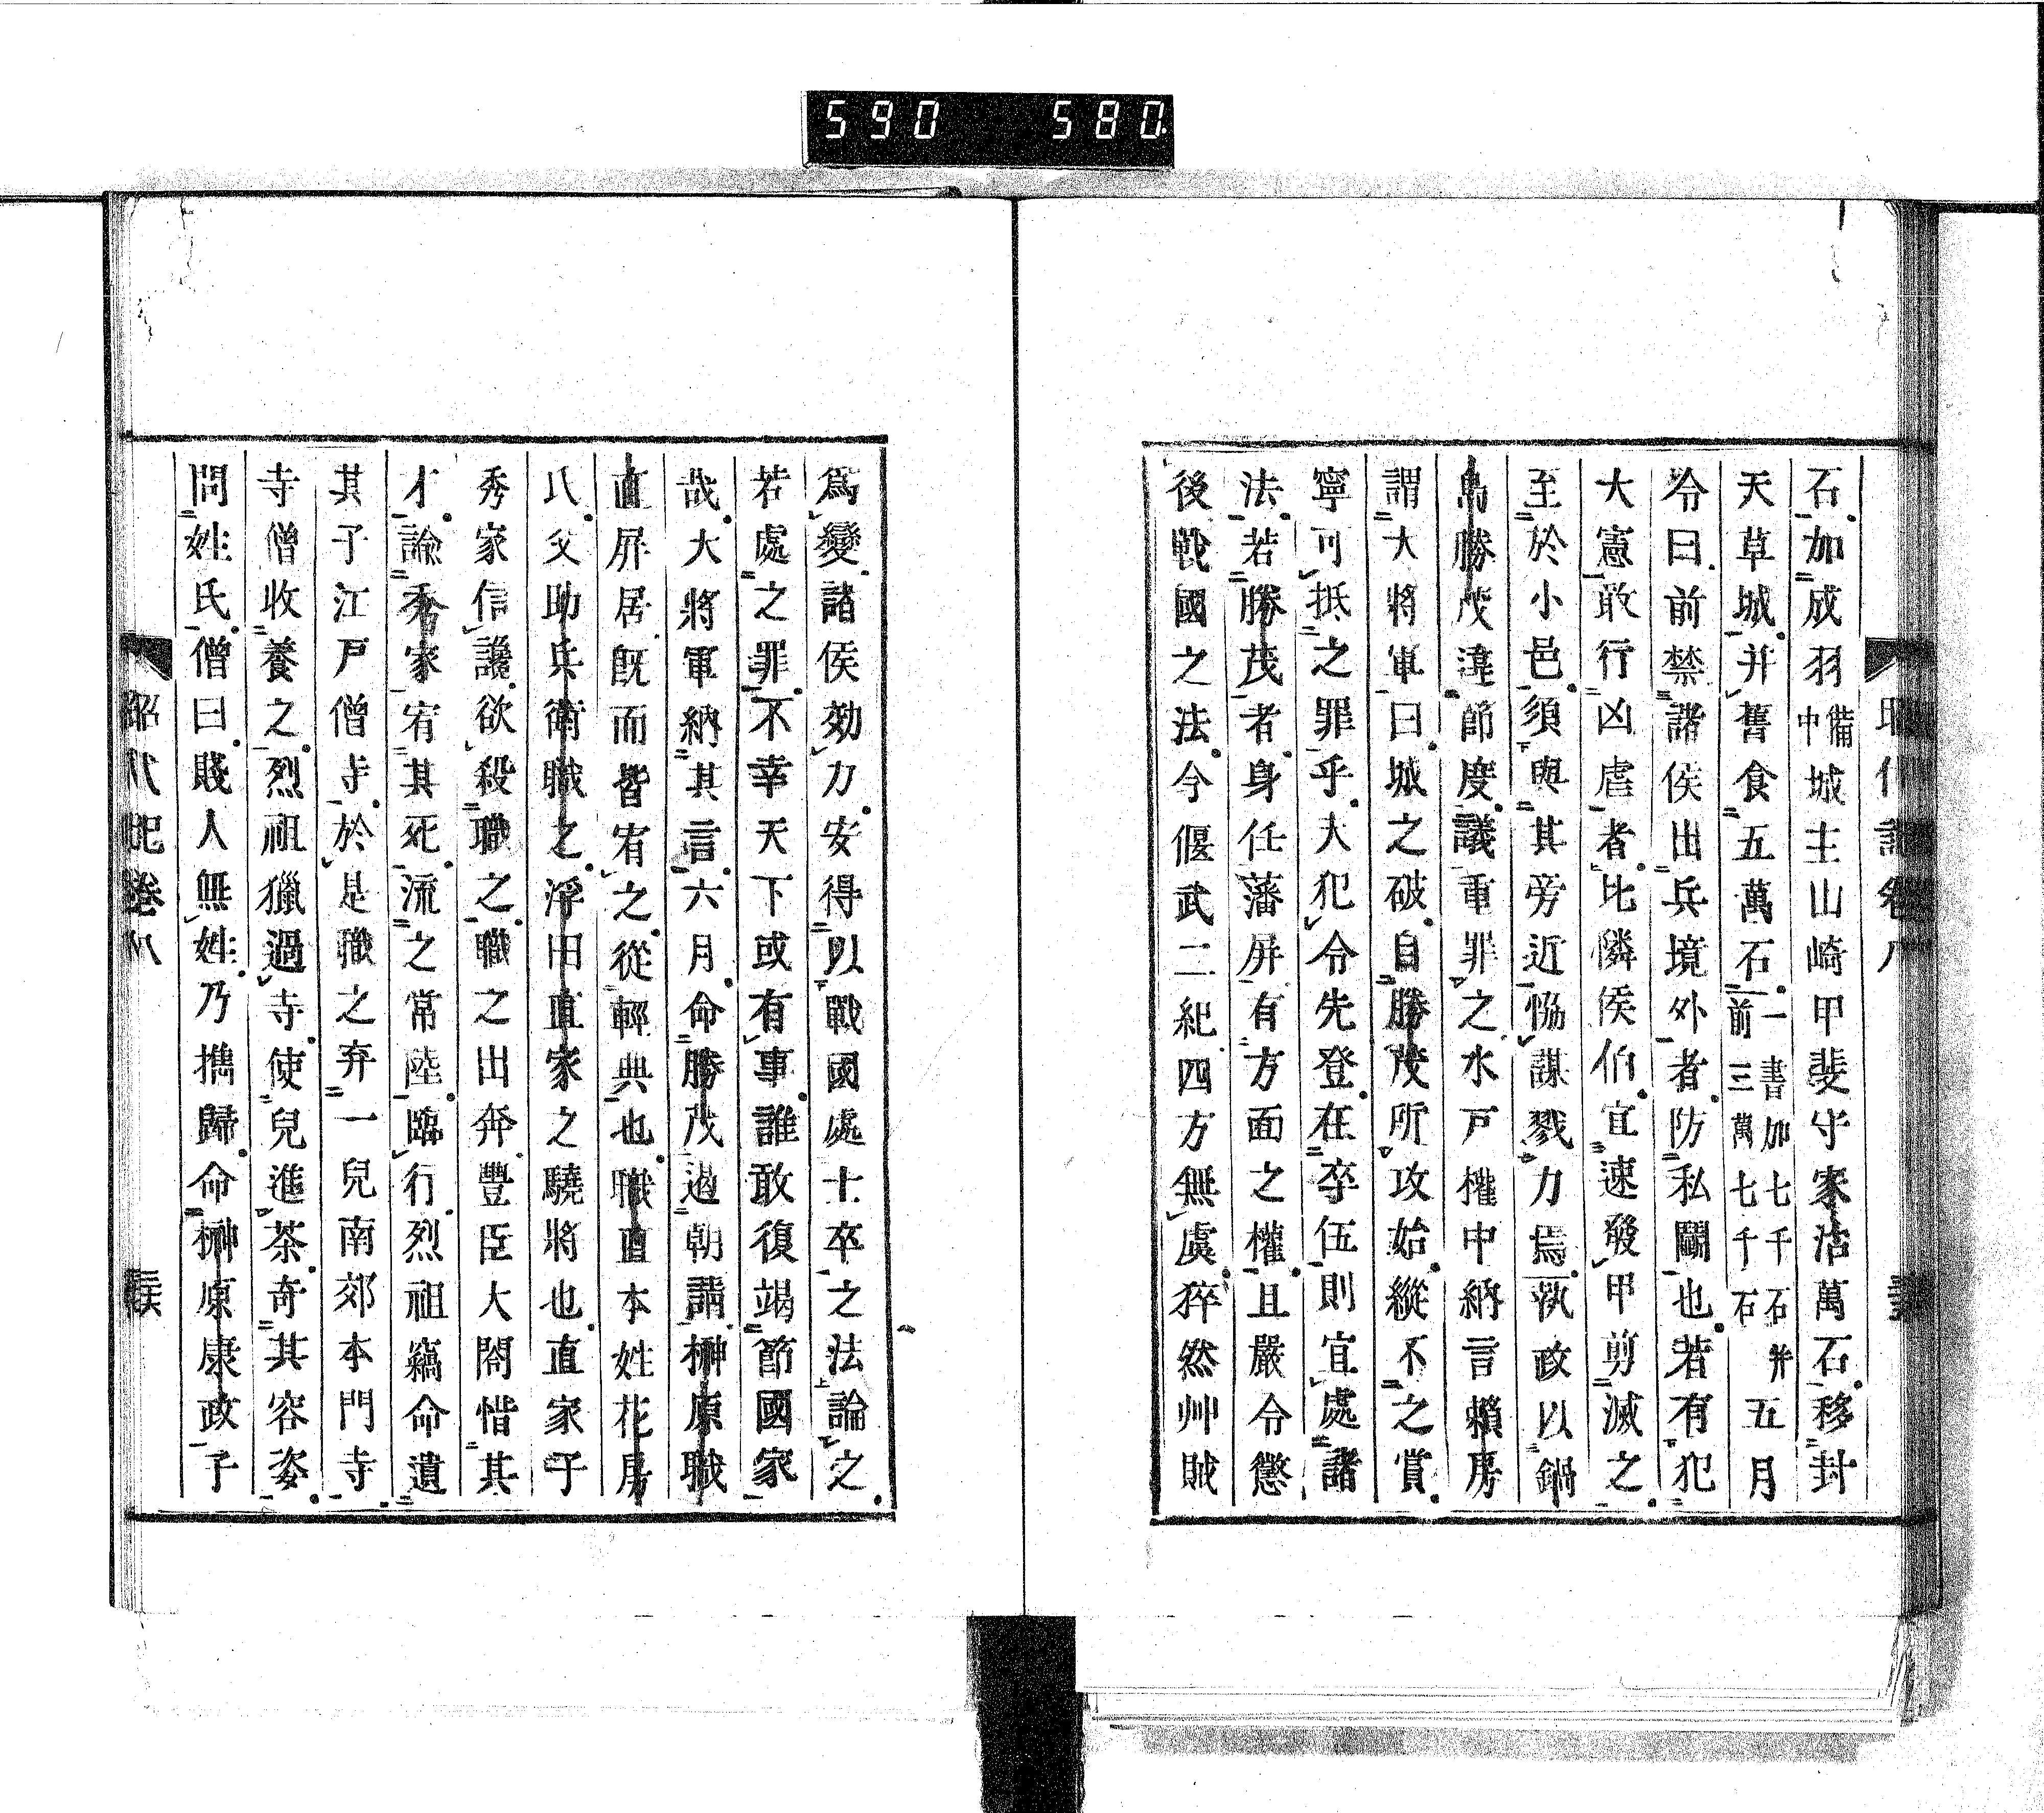 590 580
石加成羽備中城主山崎甲斐守家治萬石移封
天草城并舊食五萬石一書加七千石并前三萬七千石五月
令曰前禁諸侯出兵境外者防私鬭也若有犯
大憲敢行凶虐者比隣侯伯宜速發甲剪滅之
至於小邑須與其旁近恊謀戮力焉執政以鍋
島勝茂違節度議重罪之水戸權中納言賴房
謂大將軍曰城之破自勝茂所攻始縱不之賞
寧可抵之罪乎大犯令先登在卒伍則宜處諸
法若勝茂者身任藩屏有方面之權且嚴令懲
後戰國之法今偃武二紀四方無虞猝然艸賊
爲變諸侯効力安得以戰國處士卒之法論之
若處之罪不幸天下或有事誰敢復竭節國家
哉大將軍納其言六月命勝茂遏朝請榊原職
直屏居既而皆宥之從輕典也職直本姓花房
氏父助兵衛職之浮田直家之驍將也直家子
秀家信讒欲殺職之職之出奔豐臣大閤惜其
才諭秀家宥其死流之常陸臨行烈祖竊命遺
其子江戸僧寺於是職之弃一兒南郊本門寺
寺僧收養之烈祖獵過寺使兒進茶奇其容姿
問姓氏僧曰賤人無姓乃携歸命榊原康政子
昭代記卷八